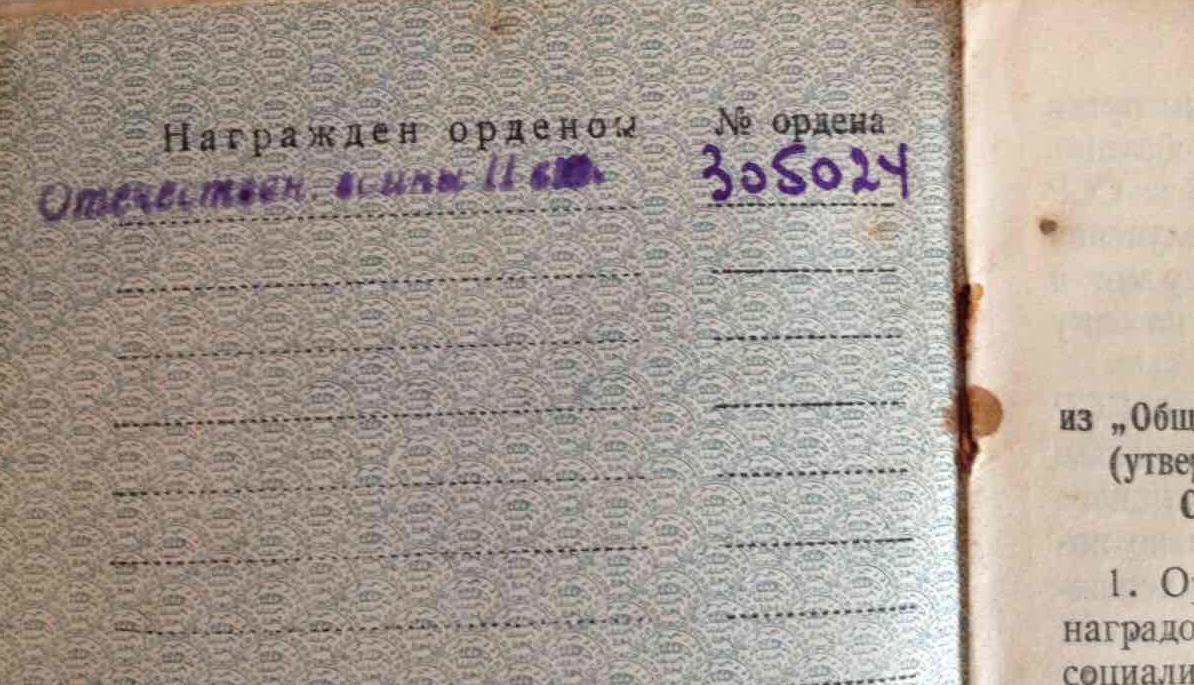 Награжден орденом № ордена
Отечествен. войны II ст. 305024
из „Общ
(утвер
С
1. Ор
наградо
социали